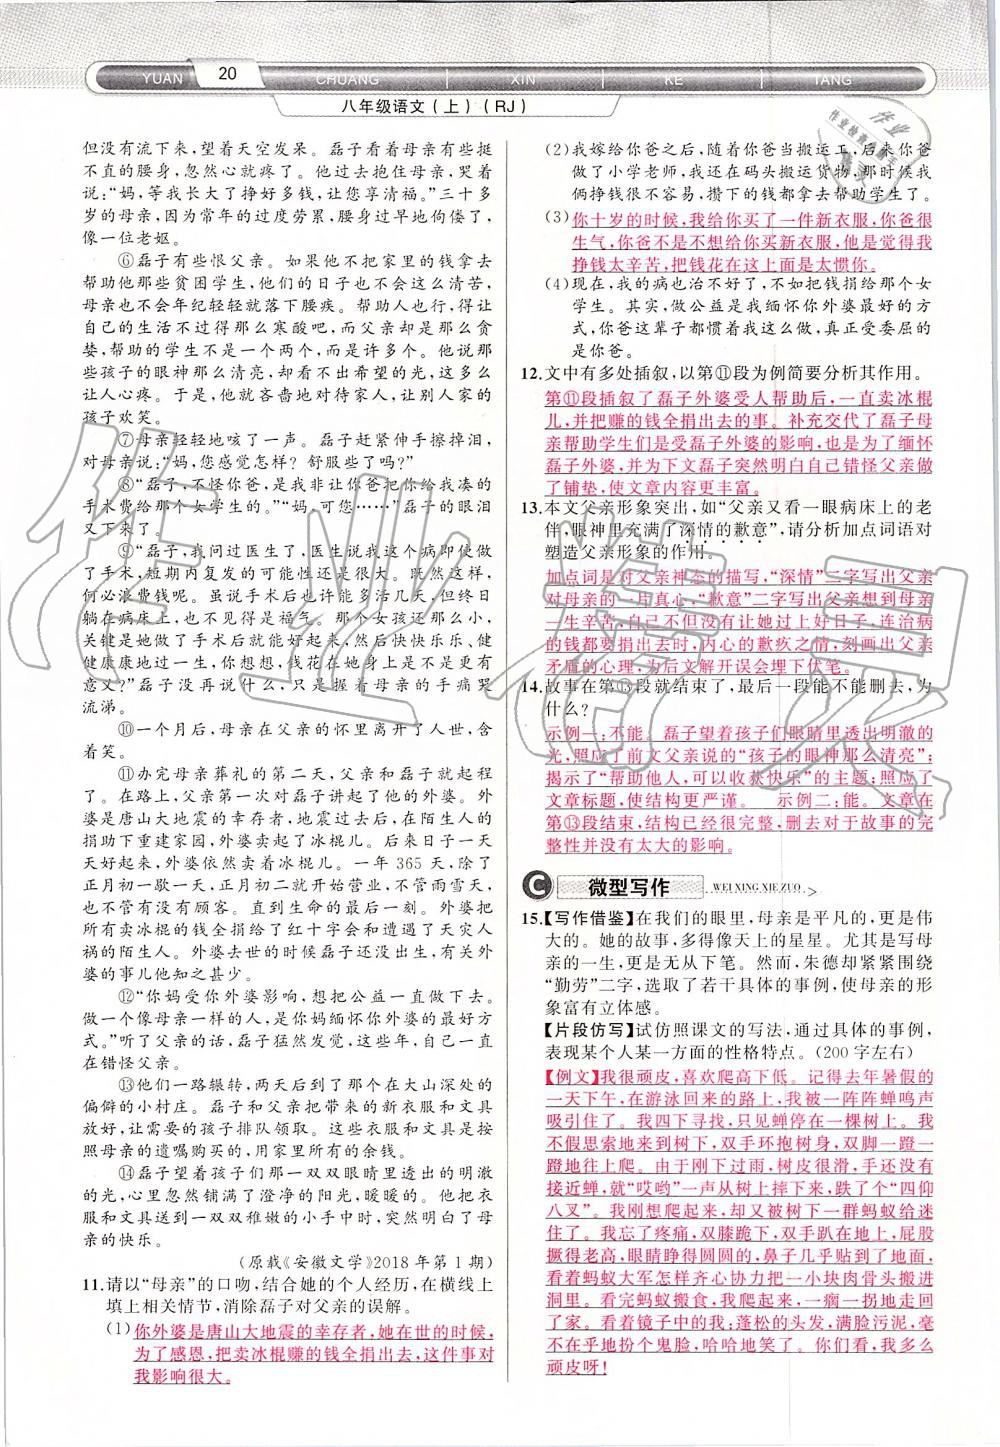 20
YUAN CHUANG XIN KE TANG
八年级语文(上)(RJ)
但没有流下来,望着天空发呆。磊子看着母亲有些挺
不直的腰身,忽然心就疼了。他过去抱住母亲,哭着
说:“妈,等我长大了挣好多钱,让您享清福。”三十多
岁的母亲,因为常年的过度劳累,腰身过早地佝偻了,
像一位老妪。
⑥磊子有些恨父亲。如果他不把家里的钱拿去
帮助他那些贫困学生,他们的日子也不会这么清苦,
母亲也不会年纪轻轻就落下腰疾。帮助人也行,得让
自己的生活不过得那么寒酸吧,而父亲却是那么贪
婪,帮助的学生不是一个两个,而是许多个。他说那
些孩子的眼神那么清亮,却看不出希望的光,这多么
让人心疼。于是,他就吝啬地对待家人,让别人家的
孩子欢笑。
⑦母亲轻轻地咳了一声。磊子赶紧伸手擦掉泪,
对母亲说:“妈,您感觉怎样?舒服些了吗?”
⑧“磊子,不怪你爸,是我非让你爸把你给我凑的
手术费给那个女学生的。”“妈,可您……”磊子的眼泪
又下来了。
⑨“磊子,我问过医生了,医生说我这个病即便做
了手术,短期内复发的可能性还是很大。既然这样,
何必浪费钱呢。虽说手术后也许能多活几天,但终日
躺在病床上,也不是什么福气。那个女孩还那么小,
关键是她做了手术后就能好起来,然后快快乐乐、健
健康康地过一生,你想想,钱花在她身上是不是更有
意义?”磊子没再说什么,只是握着母亲的手痛哭
流涕。
⑩一个月后,母亲在父亲的怀里离开了人世,含
着笑。
⑪办完母亲葬礼的第二天,父亲和磊子就起程
了。在路上,父亲第一次对磊子讲起了他的外婆。外
婆是唐山大地震的幸存者,地震过去后,在陌生人的
捐助下重建家园,外婆卖起了冰棍儿。后来日子一天
天好起来,外婆依然卖着冰棍儿。一年 365 天,除了
正月初一,正月初二就开始营业,不管雨雪天,也不管
有没有顾客。直到生命的最后一刻,外婆把
所有卖冰棍儿的钱全捐给了红十字会和遭遇了天灾人
祸的陌生人。外婆去世的时候,磊子还没出生,外
婆的事儿他知之甚少。
⑫“你妈受你外婆影响,想把公益一直做下去。
做一个像母亲一样的人,是你妈缅怀你外婆的最好方
式。”听了父亲的话,磊子猛然发觉,自己一直在
错怪父亲。
⑬他们一路辗转,两天后到了那个在大山深处的
偏僻的小村庄。磊子和父亲把带来的新衣服和文具
放好,让那里的孩子排队领取。这些衣服和文具是按
照母亲的遗嘱购买的,用家里所有的余钱。
⑭磊子望着孩子们那一双双眼睛里透出的明澈
的光,心里忽然铺满了澄净的阳光,暖暖的。他把衣
服和文具送到一双双稚嫩的小手中时,突然明白了母
亲的快乐。
(原载《安徽文学》2018 年第 1 期)
11.请以“母亲”的口吻,结合她的个人经历,在横线上
填上相关情节,消除磊子对父亲的误解。
(1)你外婆是唐山大地震的幸存者,她在世的时候,
为了感恩,把卖冰棍赚的钱全捐出去,这件事对
我影响很大。
(2)我嫁给你爸之后,随着你爸当搬运工,后来你爸
做了小学老师,我还在码头搬运货物,那时候我
俩挣钱很不容易,攒下的钱都拿去帮助学生了。
(3)你十岁的时候,我给你买了一件新衣服,你爸很
生气,你爸不是不想给你买新衣服,他是觉得我
挣钱太辛苦,把钱花在这上面是太惯你。
(4)现在,我的病也治不好了,不如把钱捐给那个女
学生。其实,做公益是我缅怀你外婆最好的方
式,你爸这辈子都惯着我这么做,真正受委屈的
是你爸。
12.文中有多处插叙,以第⑪段为例简要分析其作用。
第⑪段插叙了磊子外婆受人帮助后,一直卖冰棍
儿,并把赚的钱全捐出去的事。补充交代了磊子母
亲帮助学生们是受磊子外婆的影响,也是为了缅怀
磊子外婆,并为下文磊子突然明白自己错怪父亲做
了铺垫,使文章内容更丰富。
13.本文父亲形象突出,如“父亲又看一眼病床上的老
伴,眼神里充满了深情的歉意”,请分析加点词语对
塑造父亲形象的作用。
加点词是对父亲神态的描写,“深情”二字写出父亲
对母亲的一片真心,“歉意”二字写出父亲想到母亲
一生辛苦,自己不但没有让她过上好日子,连治病
的钱都要捐出去时,内心的歉疚之情,刻画出父亲
矛盾的心理,为后文解开误会埋下伏笔。
14.故事在第⑬段就结束了,最后一段能不能删去,为
什么?
示例一:不能。磊子望着孩子们眼睛里透出明澈的
光,照应了前文父亲说的“孩子的眼神那么清亮”;
揭示了“帮助他人,可以收获快乐”的主题;照应了
文章标题,使结构更严谨。 示例二:能。文章在
第⑬段结束,结构已经很完整,删去对于故事的完
整性并没有太大的影响。
C 微型写作 WEI XING XIE ZUO
15.【写作借鉴】在我们的眼里,母亲是平凡的,更是伟
大的。她的故事,多得像天上的星星。尤其是写母
亲的一生,更是无从下笔。然而,朱德却紧紧围绕
“勤劳”二字,选取了若干具体的事例,使母亲的形
象富有立体感。
【片段仿写】试仿照课文的写法,通过具体的事例,
表现某个人某一方面的性格特点。(200 字左右)
【例文】我很顽皮,喜欢爬高下低。记得去年暑假的
一天下午,在游泳回来的路上,我被一阵阵蝉鸣声
吸引住了。我四下寻找,只见蝉停在一棵树上。我
不假思索地来到树下,双手环抱树身,双脚一蹬一
蹬地往上爬。由于刚下过雨,树皮很滑,手还没有
接近蝉,就“哎哟”一声从树上摔下来,跌了个“四仰
八叉”。我刚想爬起来,却又被树下一群蚂蚁给迷
住了。我忘了疼痛,双膝跪下,双手趴在地上,屁股
撅得老高,眼睛睁得圆圆的,鼻子几乎贴到了地面,
看着蚂蚁大军怎样齐心协力把一小块肉骨头搬进
洞里。看完蚂蚁搬食,我爬起来,一瘸一拐地走回
了家。看着镜子中的我:蓬松的头发,满脸污泥,毫
不在乎地扮个鬼脸,哈哈地笑了。你们看,我多么
顽皮呀!